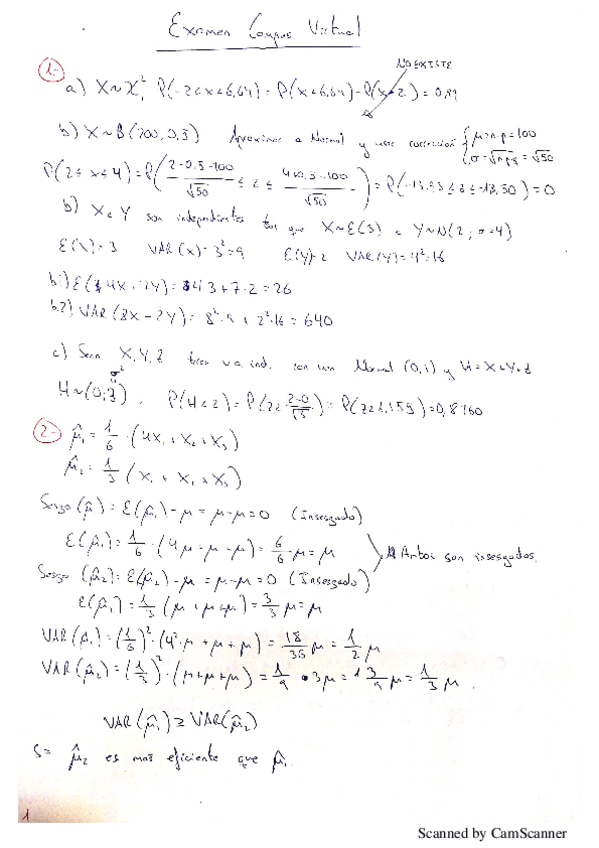 Examen Campus Virtual
NO EXISTE
1-
a) X~χ²₁ P(-2<x<6,64) = P(x<6,64) - P(x<-2) = 0,99
b) X~B(200,0,5) Aproximar a Normal y usar corrección { μ=n·p=100
σ=√n·p·q = √50
P(2≤x≤4) = P( 2-0,5-100 / √50 ≤ z ≤ 4+0,5-100 / √50 ) = P(-13,93≤z≤-13,50) = 0
b) X e Y son independientes tal que X~E(3) e Y~N(2; σ=4)
E(X)=3 VAR(x)=3²=9 E(Y)=2 VAR(Y)=4²=16
b.1) E(4X+7Y) = 4·3+7·2=26
b.2) VAR(8X-2Y) = 8²·9+2²·16 = 640
c) Sean X,Y,Z tres v.a. ind. con una Normal (0,1) y H=X+Y+Z
σ²
H~(0;3), P(H<2) = P(z< 2-0 / √3) = P(z<1,155) = 0,8760
2- μ̂₁ = 1/6 · (4X₁+X₂+X₃)
μ̂₂ = 1/3 (X₁+X₂+X₃)
Sesgo (μ̂₁) = E(μ̂₁)-μ = μ-μ=0 (Insesgado)
E(μ̂₁) = 1/6 · (4μ+μ+μ) = 6/6 ·μ = μ
Ambos son insesgados.
Sesgo (μ̂₂) = E(μ̂₂)-μ = μ-μ=0 (Insesgado)
E(μ̂₂) = 1/3 (μ+μ+μ) = 3/3 μ = μ
VAR(μ̂₁) = (1/6)² · (4²·μ+μ+μ) = 18/36 μ = 1/2 μ
VAR(μ̂₂) = (1/3)² · (μ+μ+μ) = 1/9 · 3μ = 3/9 μ = 1/3 μ.
VAR(μ̂₁) ≥ VAR(μ̂₂)
μ̂₂ es más eficiente que μ̂₁.
1
Scanned by CamScanner